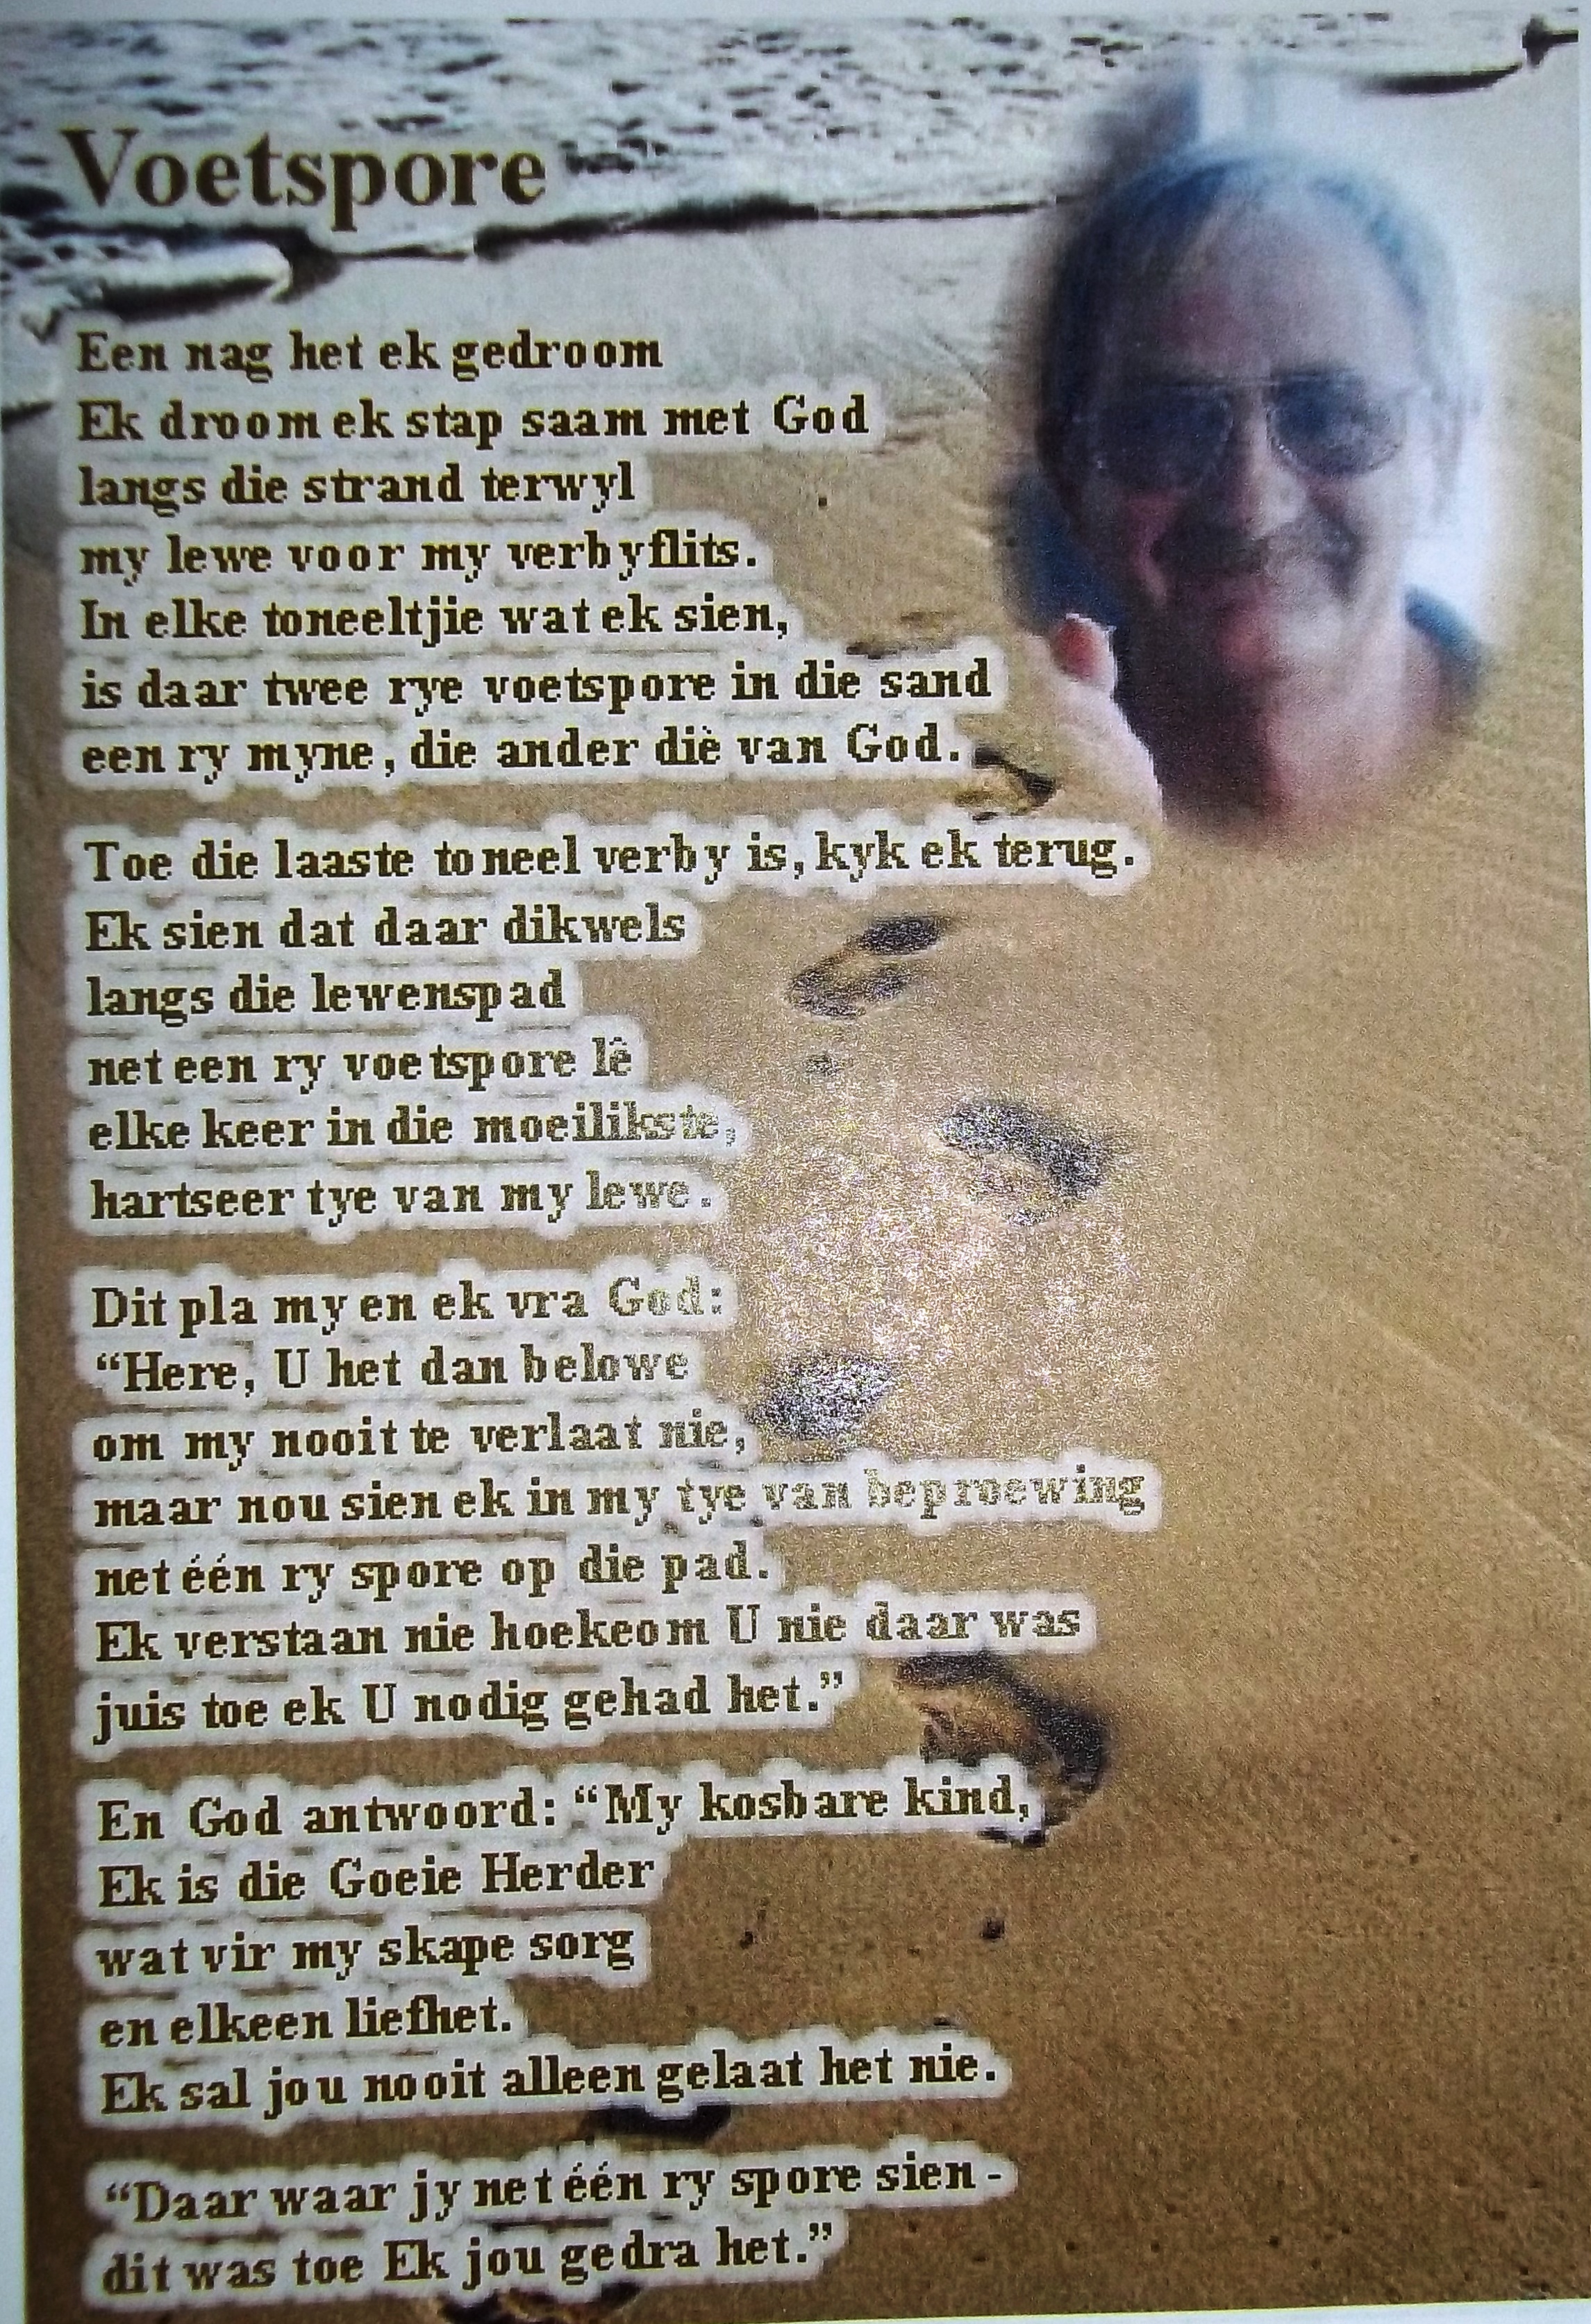 Voetspore
Een nag het ek gedroom
Ek droom ek stap saam met God
langs die strand terwyl
my lewe voor my verbyflits.
In elke toneeltjie wat ek sien,
is daar twee rye voetspore in die sand
een ry myne, die ander diè van God.
Toe die laaste toneel verby is, kyk ek terug.
Ek sien dat daar dikwels
langs die lewenspad
net een ry voetspore lê
elke keer in die moeilikste,
hartseer tye van my lewe.
Dit pla my en ek vra God:
“Here, U het dan belowe
om my nooit te verlaat nie,
maar nou sien ek in my tye van beproewing
net één ry spore op die pad.
Ek verstaan nie hoekeom U nie daar was
juis toe ek U nodig gehad het.”
En God antwoord: “My kosbare kind,
Ek is die Goeie Herder
wat vir my skape sorg
en elkeen liefhet.
Ek sal jou nooit alleen gelaat het nie.
“Daar waar jy net één ry spore sien -
dit was toe Ek jou gedra het.”